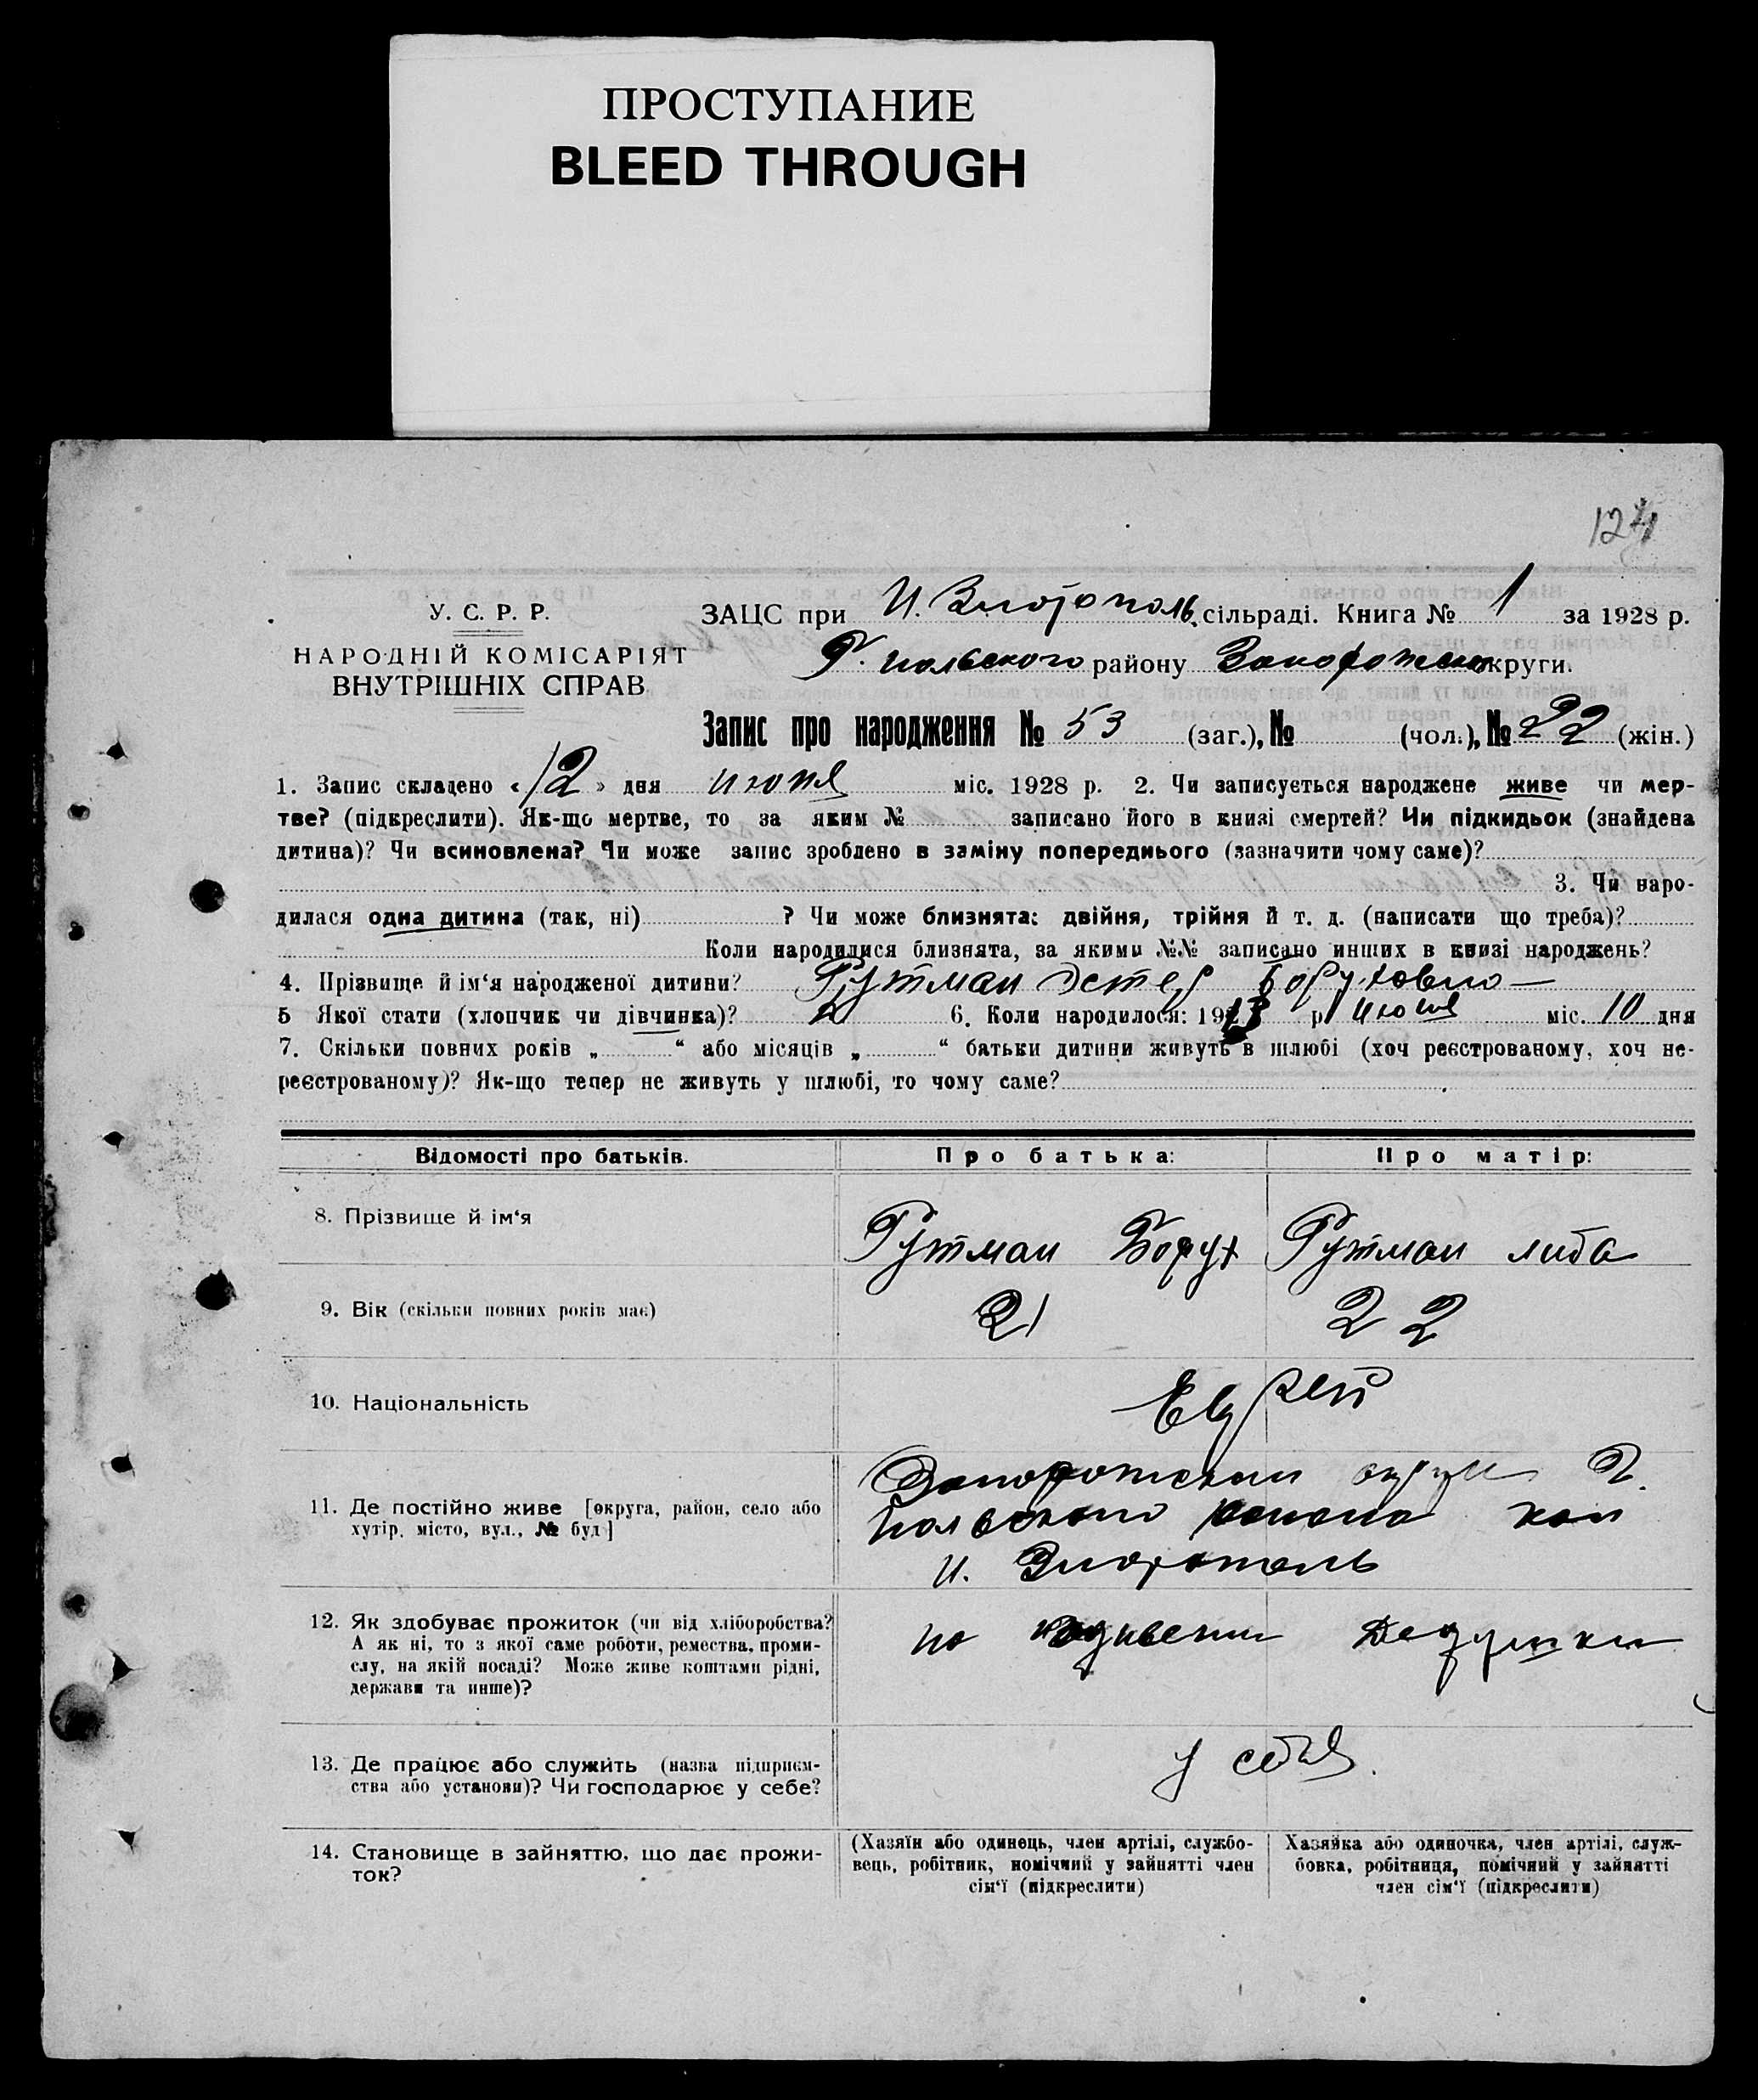 ПРОСТУПАНИЕ
BLEED THROUGH
124
У. С. Р. Р.
НАРОДНІЙ КОМІСАРІЯТ
ВНУТРІШНІХ СПРАВ
ЗАЦС при И. Златополь сільраді. Книга № 1 за 1928 р.
Г. польского району Запорожской округи.
Запис про народження № 53 (заг.), № (чол.), № 22 (жін.)
1. Запис складено «12» дня июня міс. 1928 р. 2. Чи записується народжене живе чи мер-
тве? (підкреслити). Як-що мертве, то за яким № записано його в книзі смертей? Чи підкидьок (знайдена
дитина)? Чи всиновлена? Чи може запис зроблено в заміну попереднього (зазначити чому саме)?
3. Чи наро-
дилася одна дитина (так, ні) ? Чи може близнята: двійня, трійня й т. д. (написати що треба)?
Коли народилися близнята, за якими №№ записано инших в книзі народжень?
4. Прізвище й ім‘я народженої дитини? Гутман Эстер Боруховно
5 Якої стати (хлопчик чи дівчинка)? 6. Коли народилося: 19 р июня міс. 10 дня
7. Скільки повних років „ “ або місяців „ “ батьки дитини живуть в шлюбі (хоч реєстрованому, хоч не-
реєстрованому)? Як-що тепер не живуть у шлюбі, то чому саме?
Відомості про батьків. Про батька: Про матір:
8. Прізвище й ім‘я Гутман Борух Гутман Либа
9. Вік (скільки повних років має) 21 22
10. Національність Еврей
11. Де постійно живе [округа, район, село або
хутір, місто, вул., № буд]
Запорожский округ Г.
польского района кол
И. Златополь
12. Як здобуває прожиток (чи від хліборобства?
А як ні, то з якої саме роботи, ремества, проми-
слу, на якій посаді? Може живе коштами рідні,
держави та инше)?
на иждивении Дедушки
13. Де працює або служить (назва підприєм-
ства або установи)? Чи господарює у себе?
у себя.
14. Становище в зайняттю, що дає прожи-
ток?
(Хазяїн або одинець, член артілі, службо-
вець, робітник, помічний у зайнятті член
сім‘ї (підкреслити)
Хазяйка або одиночка, член артілі, служ-
бовка, робітниця, помічний у зайнятті
член сім‘ї (підкреслити)